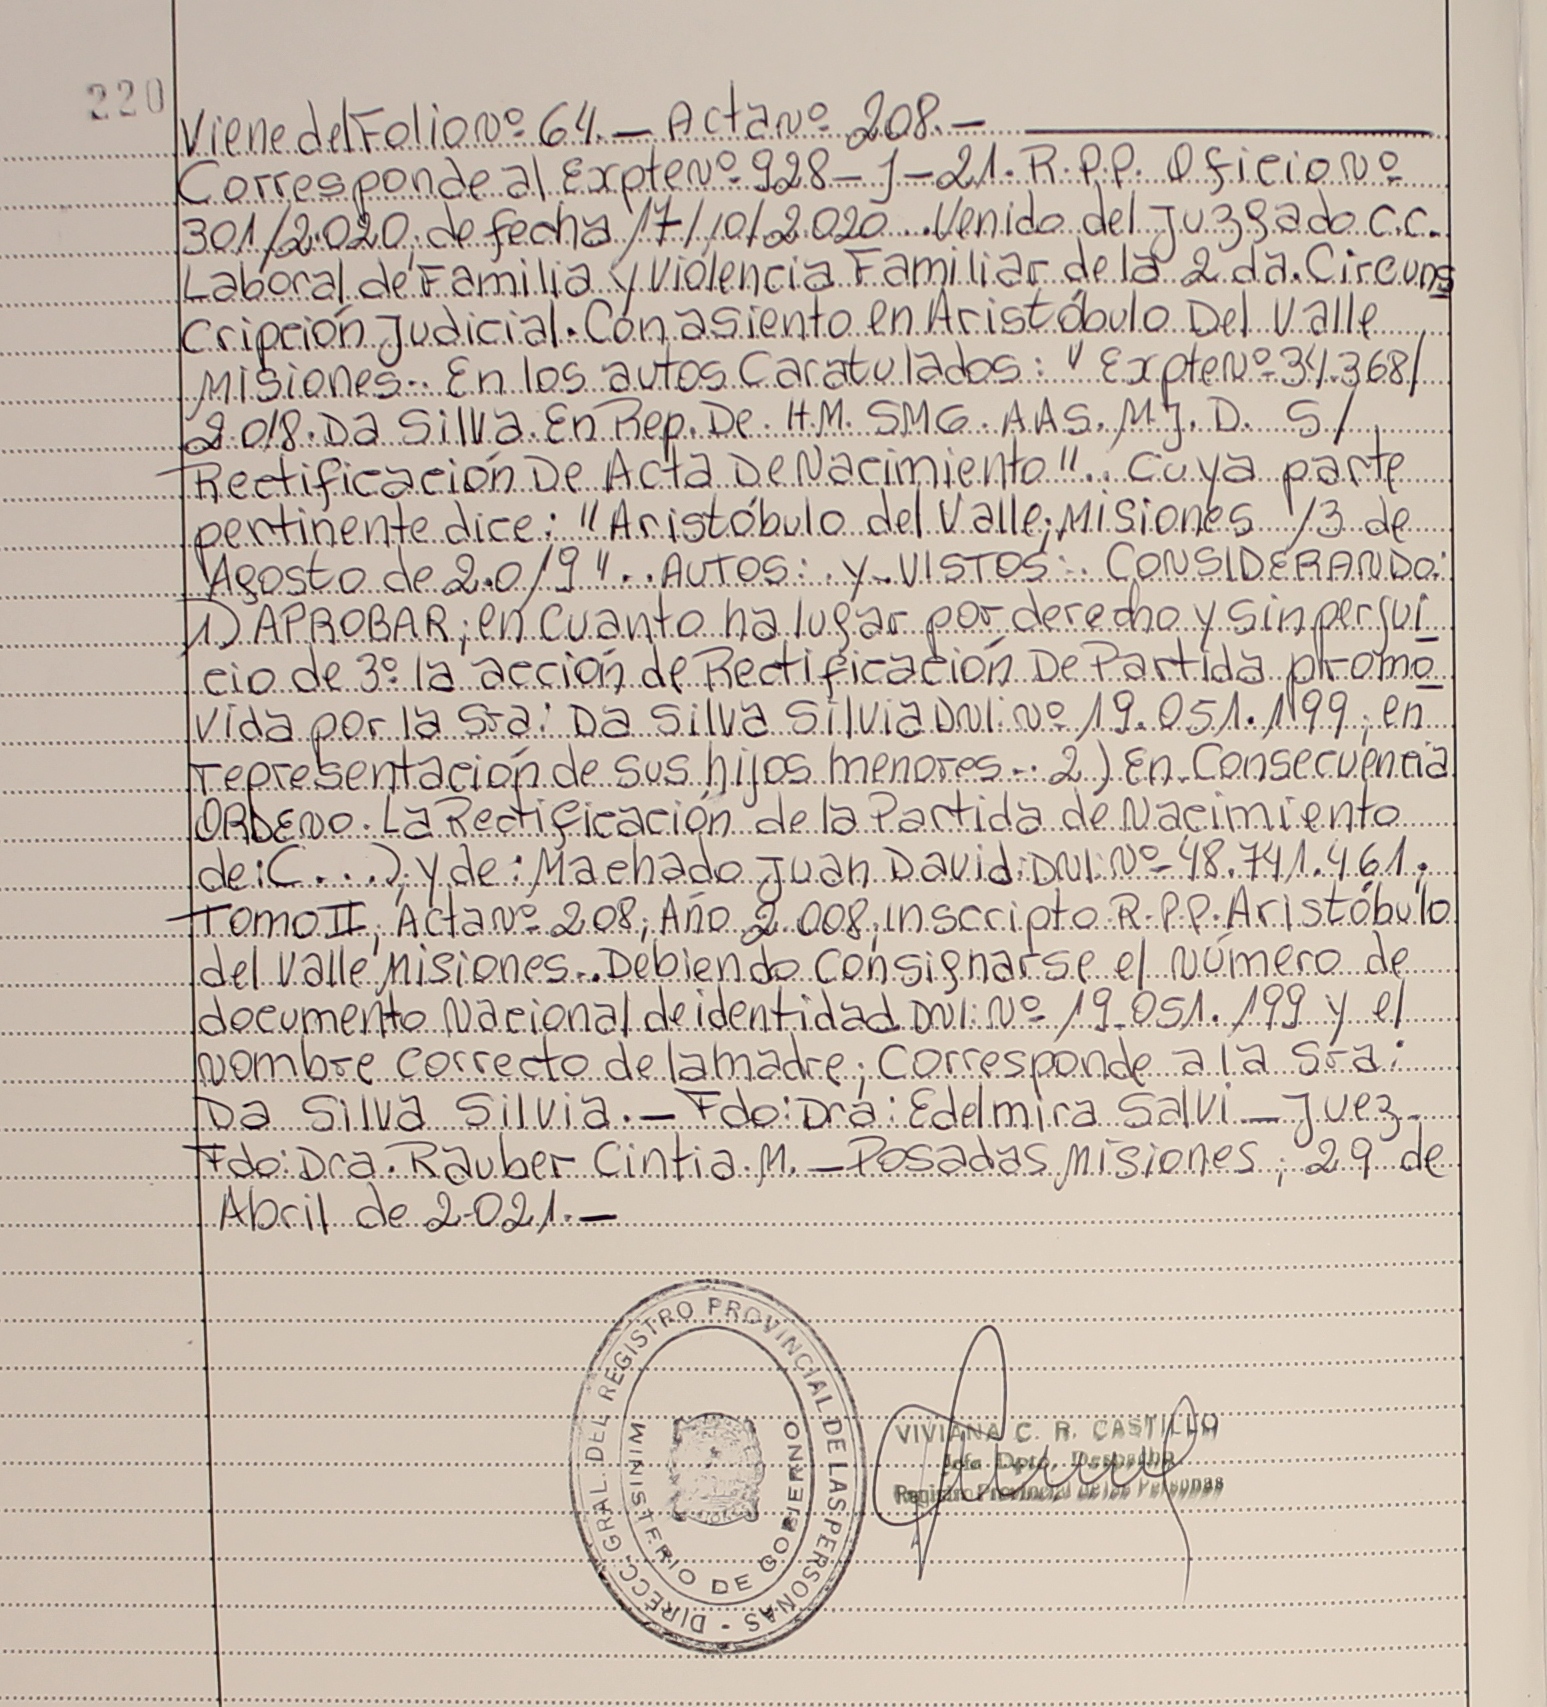 220
Viene del Folio Nº 64. — Acta Nº 208. —
Corresponde al Expte Nº 928-J-21. R.P.P. Oficio Nº
301/2.020, de fecha 17/10/2.020... Venido del Juzgado C.C.
Laboral de Familia y Violencia Familiar de la 2da. Circuns
cripción Judicial. Con asiento en Aristóbulo Del Valle
Misiones.. En los autos Caratulados: "Expte Nº 34.368/
2.018. Da Silva. En Rep. De. H.M. SMG. A.A.S. M.J.D. S/
Rectificación De Acta De Nacimiento".. Cuya parte
pertinente dice: "Aristóbulo del Valle, Misiones 13 de
Agosto de 2.019".. AUTOS: y VISTOS: CONSIDERANDO:
1) APROBAR, en cuanto ha lugar por derecho y sin perjui
cio de 3º la acción de Rectificación De Partida promo
vida por la Sra: Da Silva Silvia DNI: Nº 19.051.199, en
representación de sus hijos menores.. 2) En Consecuencia
ORDENO. La Rectificación de la Partida de Nacimiento
de: (...), y de: Machado Juan David. DNI: Nº 48.741.461,
Tomo II, Acta Nº 208, Año 2.008, inscripto R.P.P. Aristóbulo
del Valle Misiones.. Debiendo Consignarse el Número de
documento Nacional de identidad DNI: Nº 19.051.199 y el
Nombre Correcto de la madre, Corresponde a la Sra:
Da Silva Silvia. — Fdo: Dra: Edelmira Salvi — Juez.
Fdo: Dra. Rauber Cintia. M. — Posadas Misiones, 29 de
Abril de 2.021. —
DIRECC. GRAL. DEL REGISTRO PROVINCIAL DE LAS PERSONAS -
MINISTERIO DE GOBIERNO
VIVIANA C. R. CASTILLO
Jefa Dpto. Despacho
Registro Provincial de las Personas